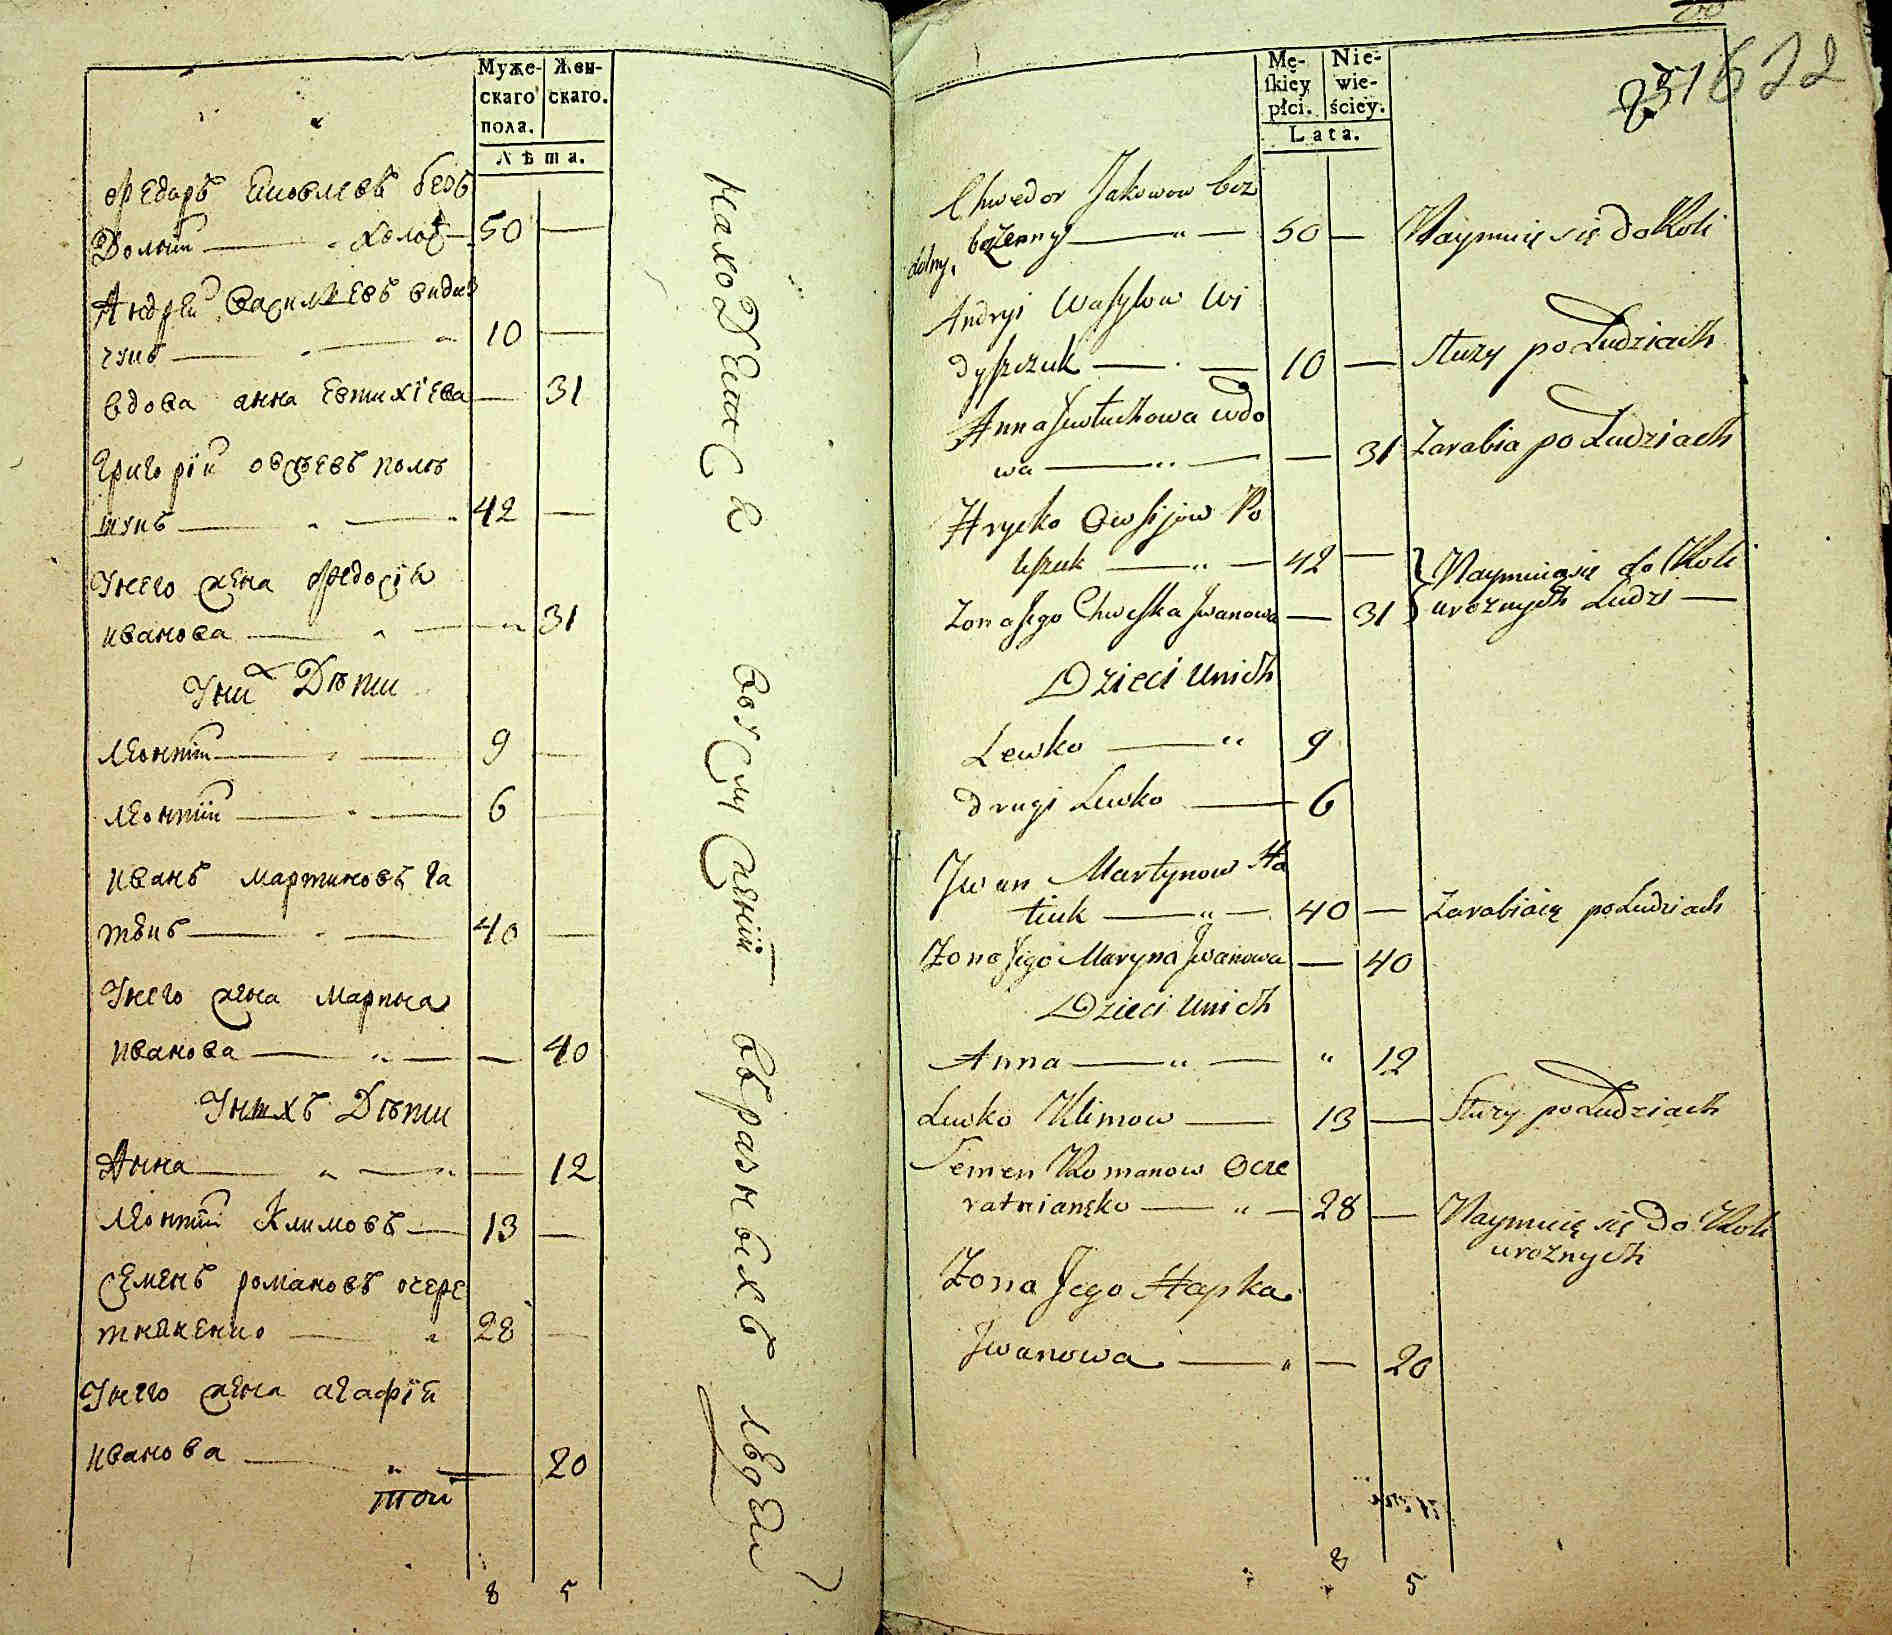 Муже-
скаго
пола.
Жен-
скаго.
Лѣта.
Федоръ Яковлевъ безъ
Дольній — холост — 50 —
Андрей Василиевъ видиш
чукъ — 10 —
вдова анна Евтихіева — 31
Григорій овсѣевъ полѣ
щукъ — 42 —
Унего жена Федосія
иванова — 31
Уних Дѣти
Леонтій — 9 —
Леонтій — 6 —
Иванъ мартиновъ га
тюкъ — 40 —
Унего жена марина
иванова — — 40
Унихъ Дѣти
Анна — — 12
Леонтій Климовъ — 13 —
Семенъ романовъ очере
тнянко — 28 —
Унего жена агафія
иванова — 20
той
8 5
находятся въ услуженій въ разныхъ людей
Mę-
skiey
płci.
Nie-
wie-
ściey.
Lata.
251 622
Chwedor Jakowow bez
dolny, bezżenny — 50 — Naymuię się do Roli
Andryi Wasylow Wi
dyszczuk — 10 — Służy po Ludziach
Anna Jewtuchowa wdo
wa — — 31 Zarabia po Ludziach
Hryćko Owsijow Po
liszuk — 42 — Naymuią się do Roli
Zona Jego Chweska Jwanowa — 31 uroznych Ludzi —
Dzieci Unich
Lewko — 9
drugi Lewko — 6
Jwan Martynow Ha
tiuk — 40 — Zarabiaią po Ludziach
Zona Jego Maryna Jwanowa — 40
Dzieci Unich
Anna — " 12
Lewko Klimow — 13 — Służy po Ludziach
Semen Romanow Ocze
ratniansko — 28 — Naymuię się do Roli
uroznych
Zona Jego Hapka
Jwanowa — — 20
8 5